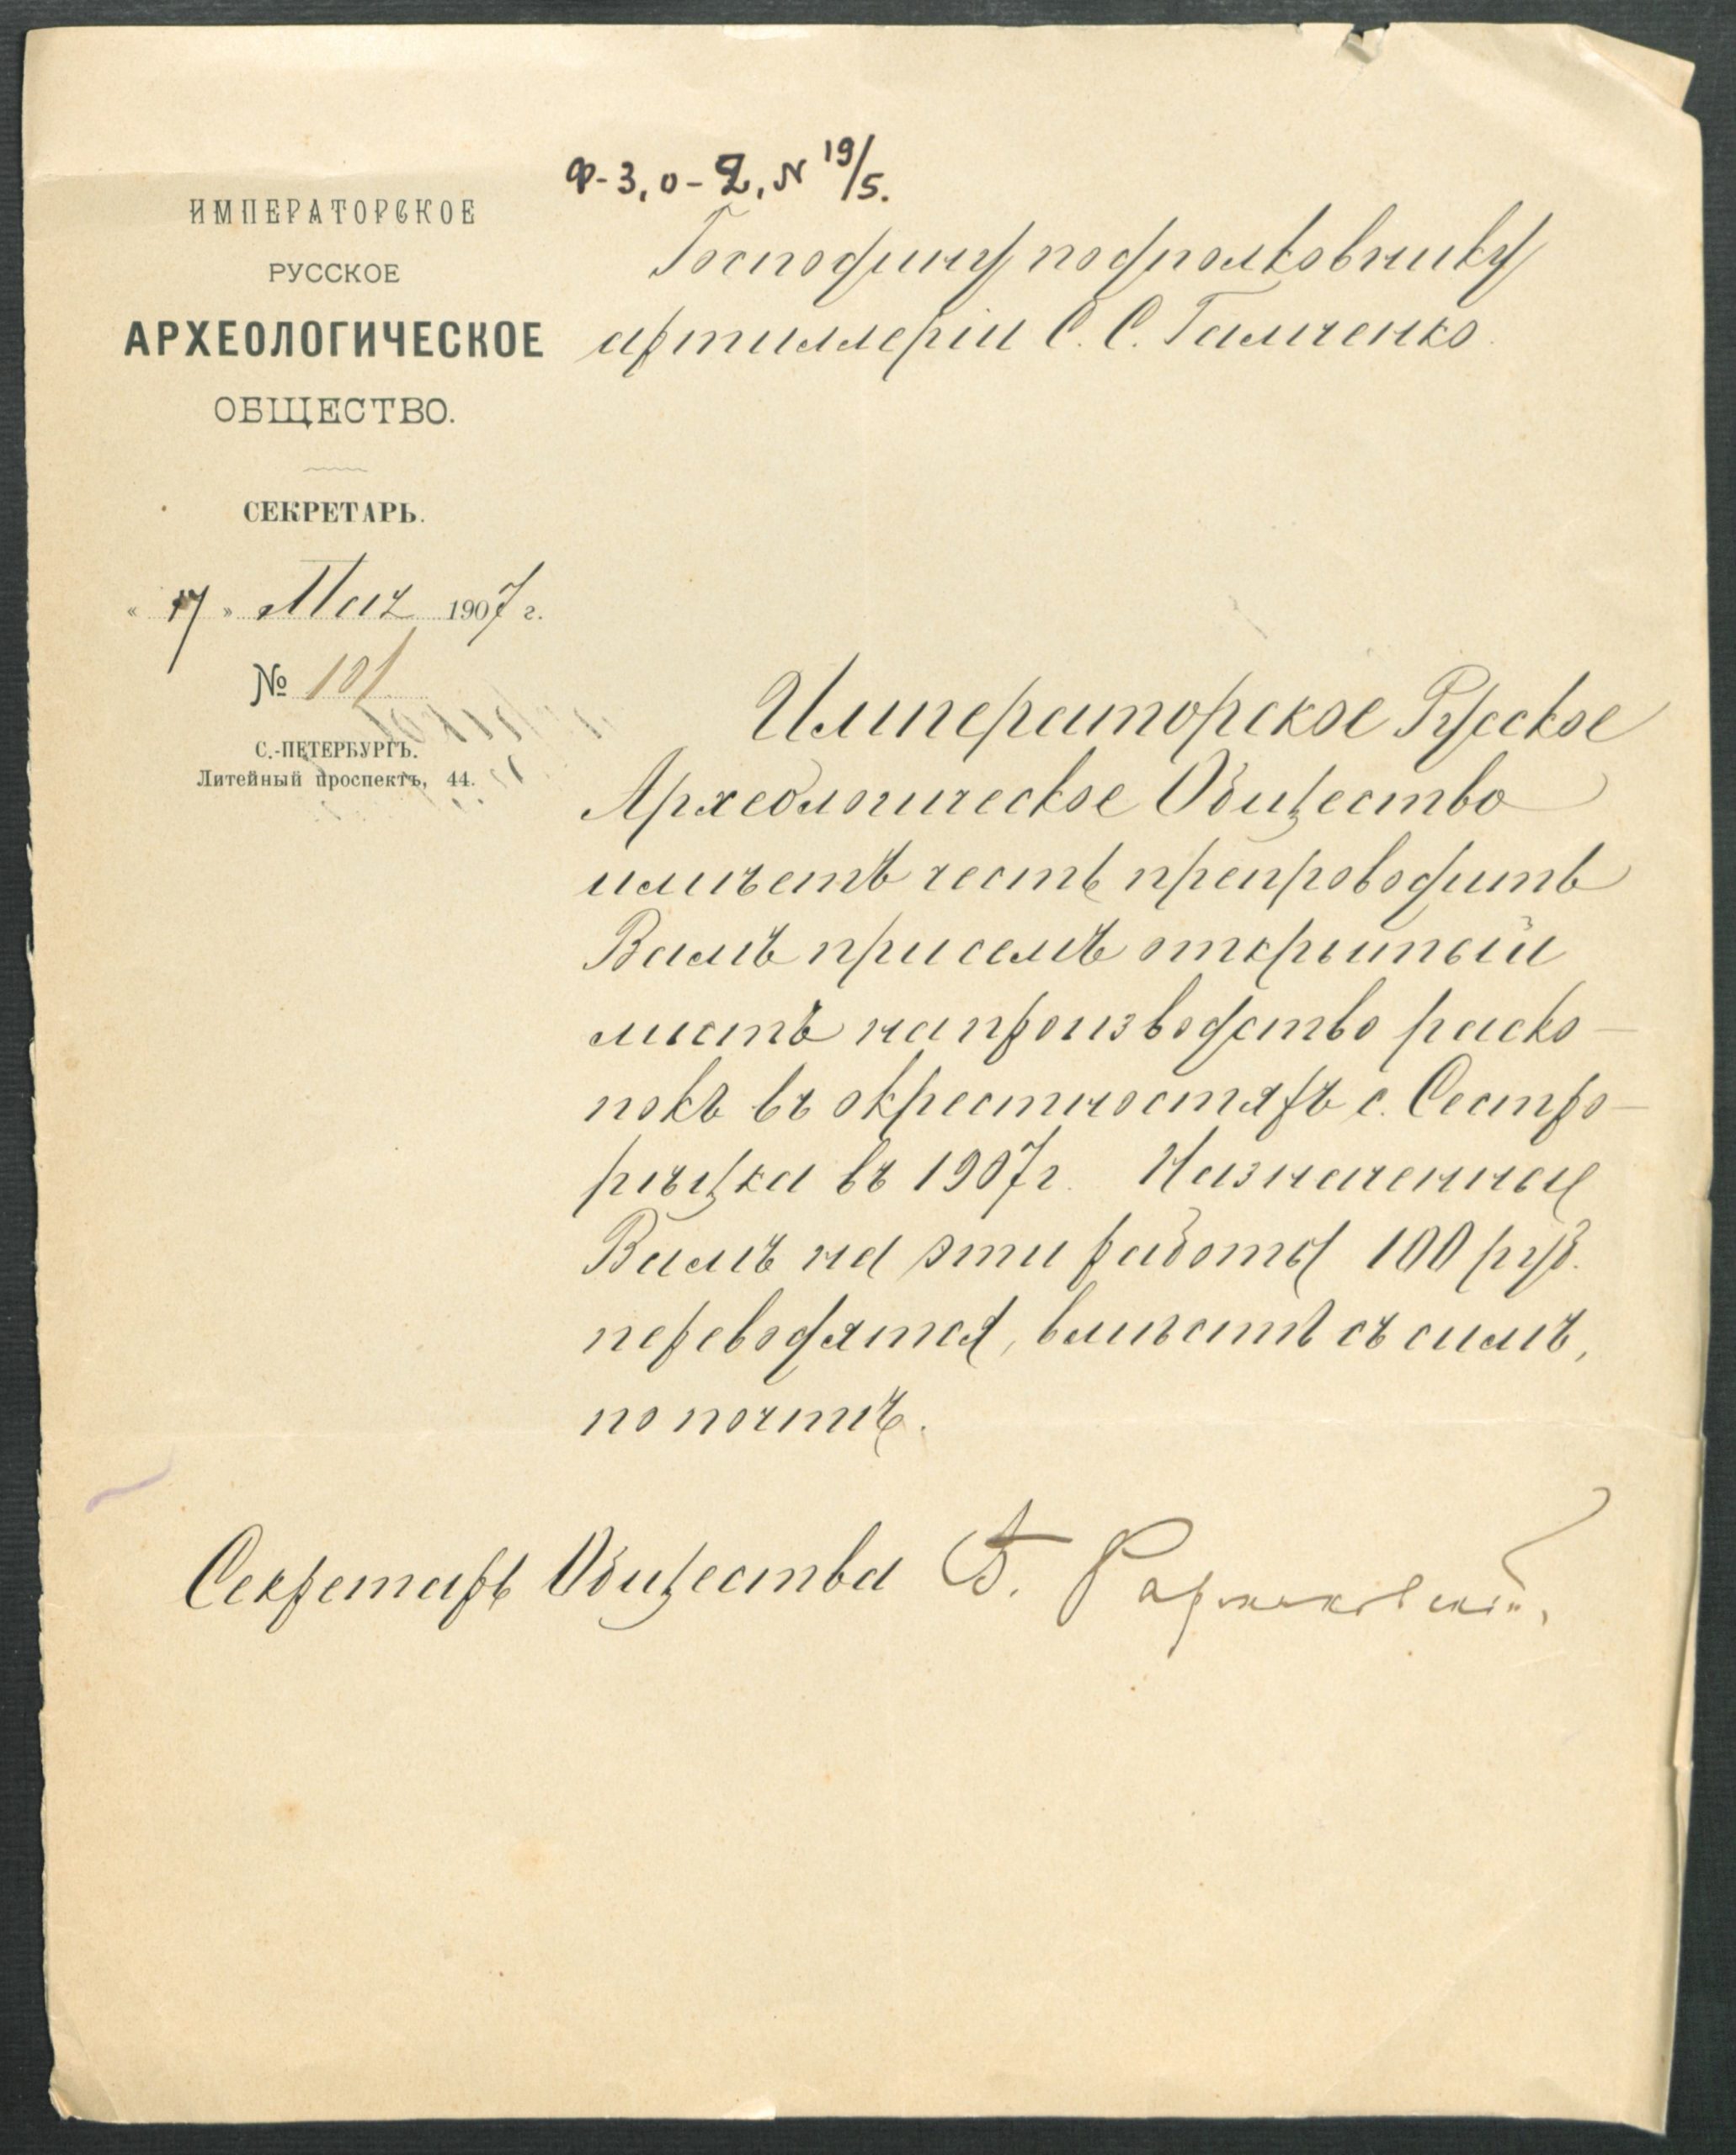 Ф-3, о-2, N 19/5.
ИМПЕРАТОРСКОЕ
РУССКОЕ
АРХЕОЛОГИЧЕСКОЕ
ОБЩЕСТВО.
СЕКРЕТАРЬ.
« 17 » Мая 1907 г.
№ 101.
С.-ПЕТЕРБУРГЪ.
Литейный проспектъ, 44.
Господину подполковнику
артиллеріи С. С. Гамченко.
Императорское Русское
Археологическое Общество
имѣетъ честь препроводить
Вамъ при семъ открытый
листъ на производство раско-
покъ въ окрестностяхъ с. Сестро-
рѣцка въ 1907 г. Назначенные
Вамъ на эти работы 100 руб.
переводятся, вмѣстѣ съ симъ,
по почтѣ.
Секретарь Общества Б. Фармаковскій.